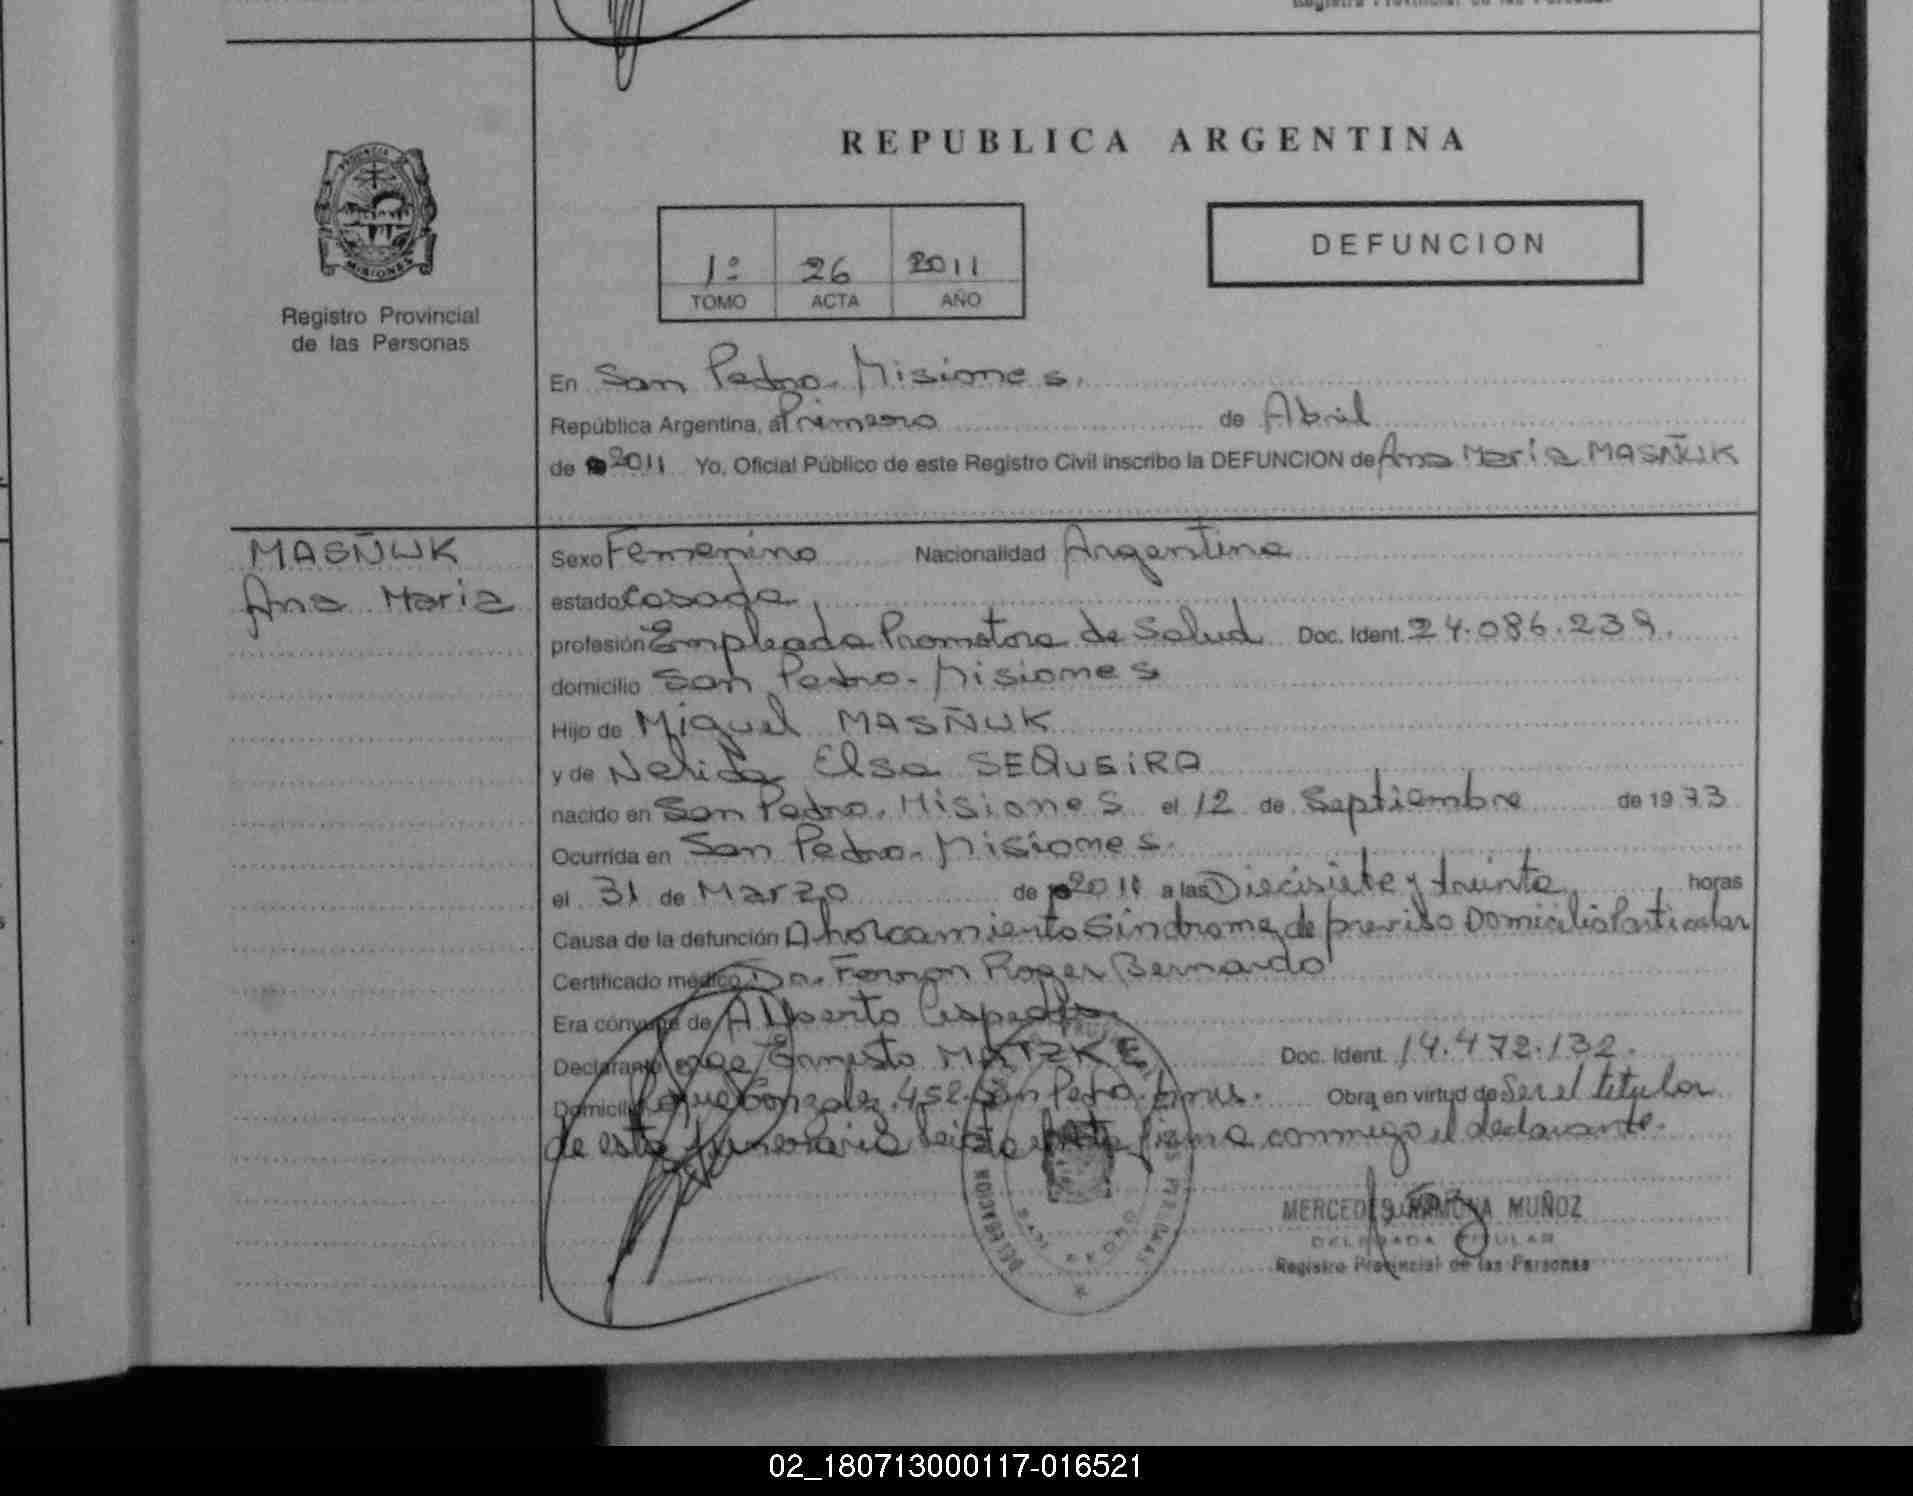 Registro Provincial de las Personas
REPUBLICA ARGENTINA
PROVINCIA DE
MISIONES
Registro Provincial
de las Personas
1º 26 2011
TOMO ACTA AÑO
DEFUNCION
En San Pedro. Misiones.
República Argentina, a Primero de Abril
de 2011 Yo, Oficial Público de este Registro Civil inscribo la DEFUNCION de Ana Maria MASÑUK
MASÑUK
Ana Maria
Sexo Femenino Nacionalidad Argentina
estado Casada
profesión Empleada Promotora de Salud Doc. Ident. 24.086.239.
domicilio San Pedro. Misiones
Hijo de Miguel MASÑUK
y de Nelida Elsa SEQUEIRA
nacido en San Pedro. Misiones el 12 de Septiembre de 1973
Ocurrida en San Pedro. Misiones.
el 31 de Marzo de 2011 a las Diecisiete y treinta horas
Causa de la defunción Ahorcamiento Sindrome de Domicilio Particular
Certificado médico Dr. Roger Bernardo
Era cónyuge de Alberto
Declarante Jorge Ernesto MATZKE Doc. Ident. 14.472.132.
Domicilio Roque Gonzalez 452. San Pedro. Mnes. Obra en virtud de Ser el titular
de esta funeraria leida el acta firma conmigo el declarante.
DELEGACION
MERCEDES RAMONA MUÑOZ
DELEGADA TITULAR
Registro Provincial de las Personas
02_180713000117-016521